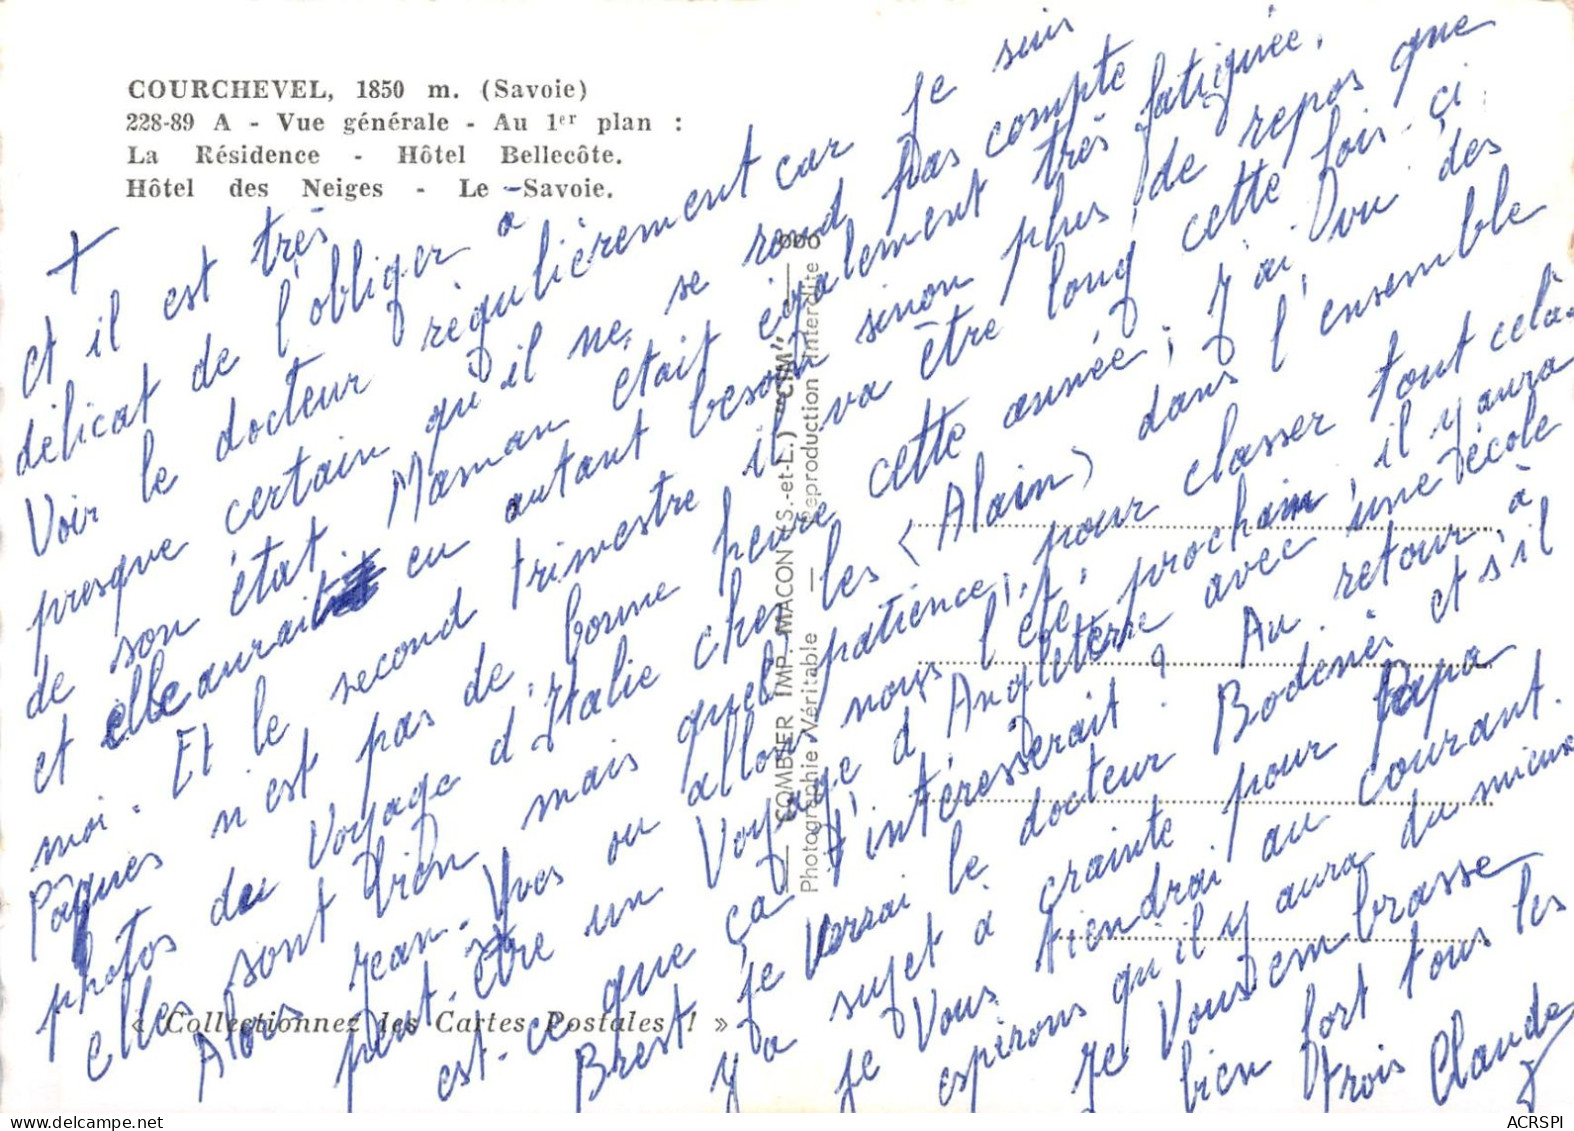 COURCHEVEL, 1850 m. (Savoie)
228-89 A - Vue générale - Au 1er plan :
La Résidence - Hôtel Bellecôte.
Hôtel des Neiges - Le Savoie.
+
et il est très
délicat de l'obliger à
voir le docteur régulièrement car je suis
presque certain qu'il ne se rend pas compte
de son état. Maman était également très fatiguée.
et elle aurait en autant besoin sinon plus de repos que
moi. Et le second trimestre il va être long cette fois-çi
Pâques n'est pas de bonne heure cette année; J'ai vu des
photos du voyage d'Italie chez les (Alain) dans l'ensemble
elles sont bien mais quel patience, pour classer tout celà.
Alors Jean-Yves ou allons nous l'été prochain, il y aura
peut-être un voyage d'Angleterre avec une école
est-ce que ça t'intéresserait? Au retour, à
Brest je verrai le docteur Bodénès et s'il
y a sujet à crainte pour Papa
je vous tiendrai au courant.
espirons qu'il y aura du mieux
Je vous embrasse
bien fort tous les
trois Claude
COMBIER IMP. MACON (S.-et-L.) "CIM"
Photographie Véritable — Reproduction interdite
« Collectionnez les Cartes Postales ! »
ACRSPI